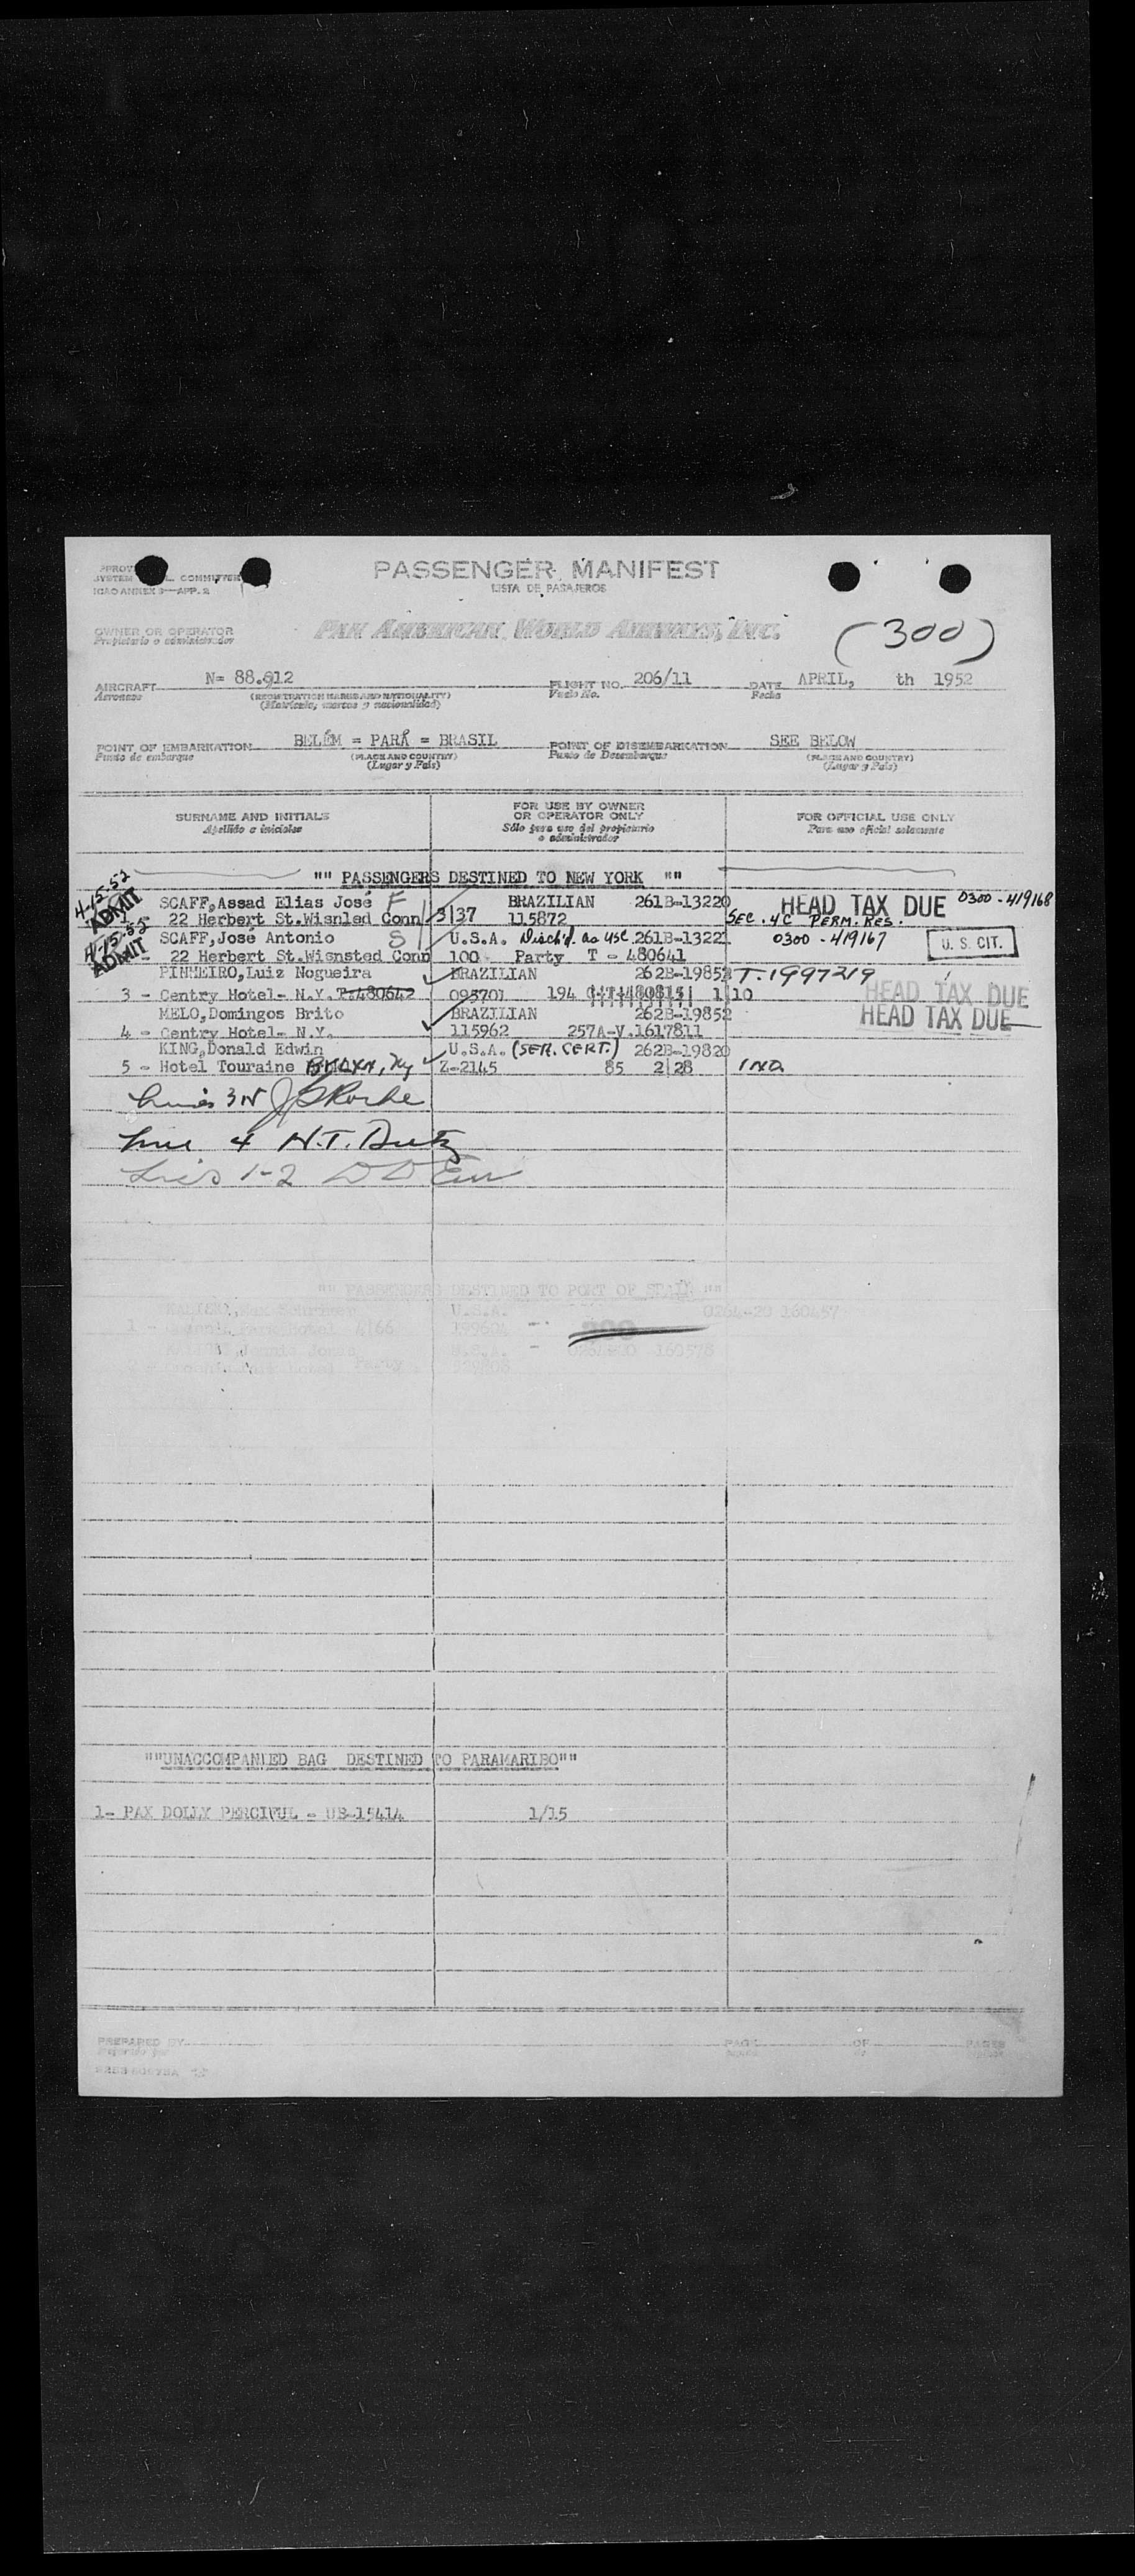 PASSENGER MANIFEST
LISTA DE PASAJEROS
SYSTEM COMMITTEE
ICAO ANNEX 9—APP. 2
OWNER OR OPERATOR
Propietario o administrador
PAN AMERICAN WORLD AIRWAYS, INC.
(300)
AIRCRAFT N= 88.912 FLIGHT NO. 206/11 DATE APRIL, th 1952
Aeronave (REGISTRATION MARKS AND NATIONALITY) Vuelo No. Fecha
(Matrícula, marcas y nacionalidad)
POINT OF EMBARKATION BELÉM = PARÁ = BRASIL POINT OF DISEMBARKATION SEE BELOW
Punto de embarque (PLACE AND COUNTRY) Punto de Desembarque (PLACE AND COUNTRY)
(Lugar y País) (Lugar y País)
SURNAME AND INITIALS FOR USE BY OWNER OR OPERATOR ONLY FOR OFFICIAL USE ONLY
Apellido e iniciales Sólo para uso del propietario o administrador Para uso oficial solamente
"" PASSENGERS DESTINED TO NEW YORK ""
4-15-52 ADMIT SCAFF,Assad Elias José F BRAZILIAN 261B-13220 HEAD TAX DUE 0300-419168
22 Herbert St.Wisnled Conn 3|37 115872 SEC. 4C PERM. RES.
4-15-52 ADMIT SCAFF,José Antonio S U.S.A. Disch'd. as USC 261B-1322 0300-419167 U. S. CIT.
22 Herbert St.Wisnsted Conn 100 Party T - 480641
PINHEIRO,Luiz Nogueira BRAZILIAN 262B-19852 T-1997219
3 - Centry Hotel- N.Y. T-480642 095701 194 1|10 HEAD TAX DUE
MELO,Domingos Brito BRAZILIAN 262B-19852 HEAD TAX DUE
4 - Centry Hotel- N.Y. 115962 257A-V.1617811
KING,Donald Edwin U.S.A. (SER. CERT.) 262B-19820
5 - Hotel Touraine BKLYN, NY Z-2145 85 2|28
Line 4 H.T.
1-2
"" PASSENGERS DESTINED TO PORT OF SPAIN ""
U.S.A. 0264-20 160457
1 - 4|66 199604
U.S.A. 160578
Party
""UNACCOMPANIED BAG DESTINED TO PARAMARIBO""
1- PAX DOLLY PERCIVUL - UB-15414 1/15
PREPARED BY PAGE OF PAGES